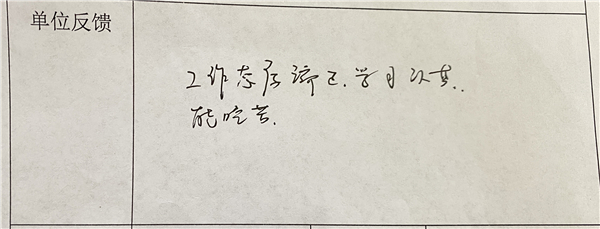 单位反馈
工作态度端正.学习认真.
能吃苦.